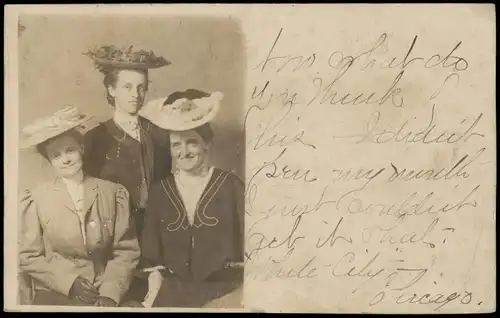 Now what do
you think of
this. I didn't
open my mouth
I just couldn't
get it shut.
White City.
Chicago.